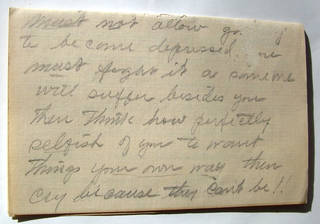 must not allow
to become depressed
must fight it as someone
will suffer besides you
then think how perfectly
selfish of you to want
things your own way then
cry because they can't be!!